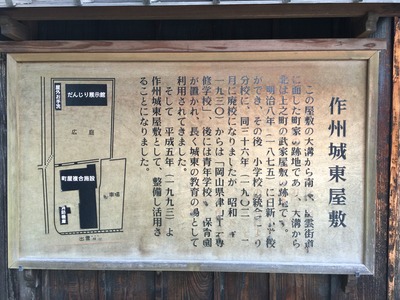 作州城東屋敷
この屋敷の大溝から南は出雲街道
に面した町家の跡地であり、大溝から
北は上之町の武家屋敷の跡地です。
明治八年(一八七五)に日新小学校
ができ、その後、小学校の統合により
分校に、同三十六年(一九〇三)
月に廃校になりましたが、昭和五年
(一九三〇)からは「岡山県津山実専
修学校」、後には青年学校、保育園
が置かれ、長く城東の教育の場として
利用されてきました。
そして、平成五年(一九九三)より
作州城東屋敷として、整備し活用さ
ることになりました。
だんじり展示館
屋外お手洗
広庭
町屋複合施設
車場
出雲